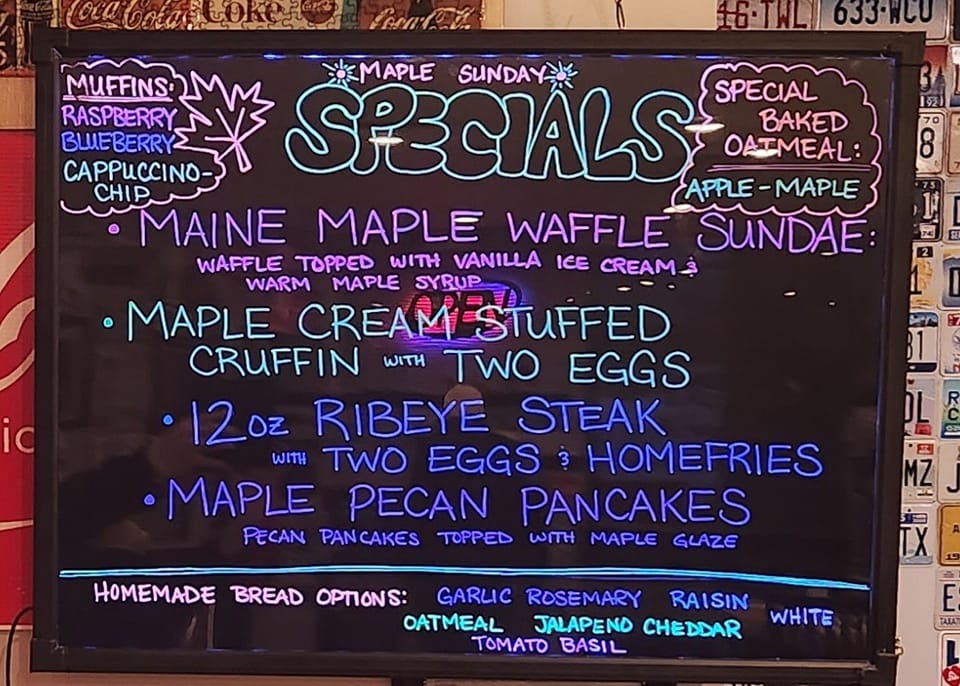 Coca-Cola Coke Coca-Cola
16·TWL 633·WCU
MAPLE SUNDAY
SPECIALS
MUFFINS:
RASPBERRY
BLUEBERRY
CAPPUCCINO-
CHIP
SPECIAL
BAKED
OATMEAL:
APPLE-MAPLE
• MAINE MAPLE WAFFLE SUNDAE:
WAFFLE TOPPED WITH VANILLA ICE CREAM &
WARM MAPLE SYRUP
OPEN
• MAPLE CREAM STUFFED
CRUFFIN WITH TWO EGGS
• 12oz RIBEYE STEAK
WITH TWO EGGS & HOMEFRIES
• MAPLE PECAN PANCAKES
PECAN PANCAKES TOPPED WITH MAPLE GLAZE
HOMEMADE BREAD OPTIONS: GARLIC ROSEMARY RAISIN WHITE
OATMEAL JALAPENO CHEDDAR
TOMATO BASIL
MZ
TX